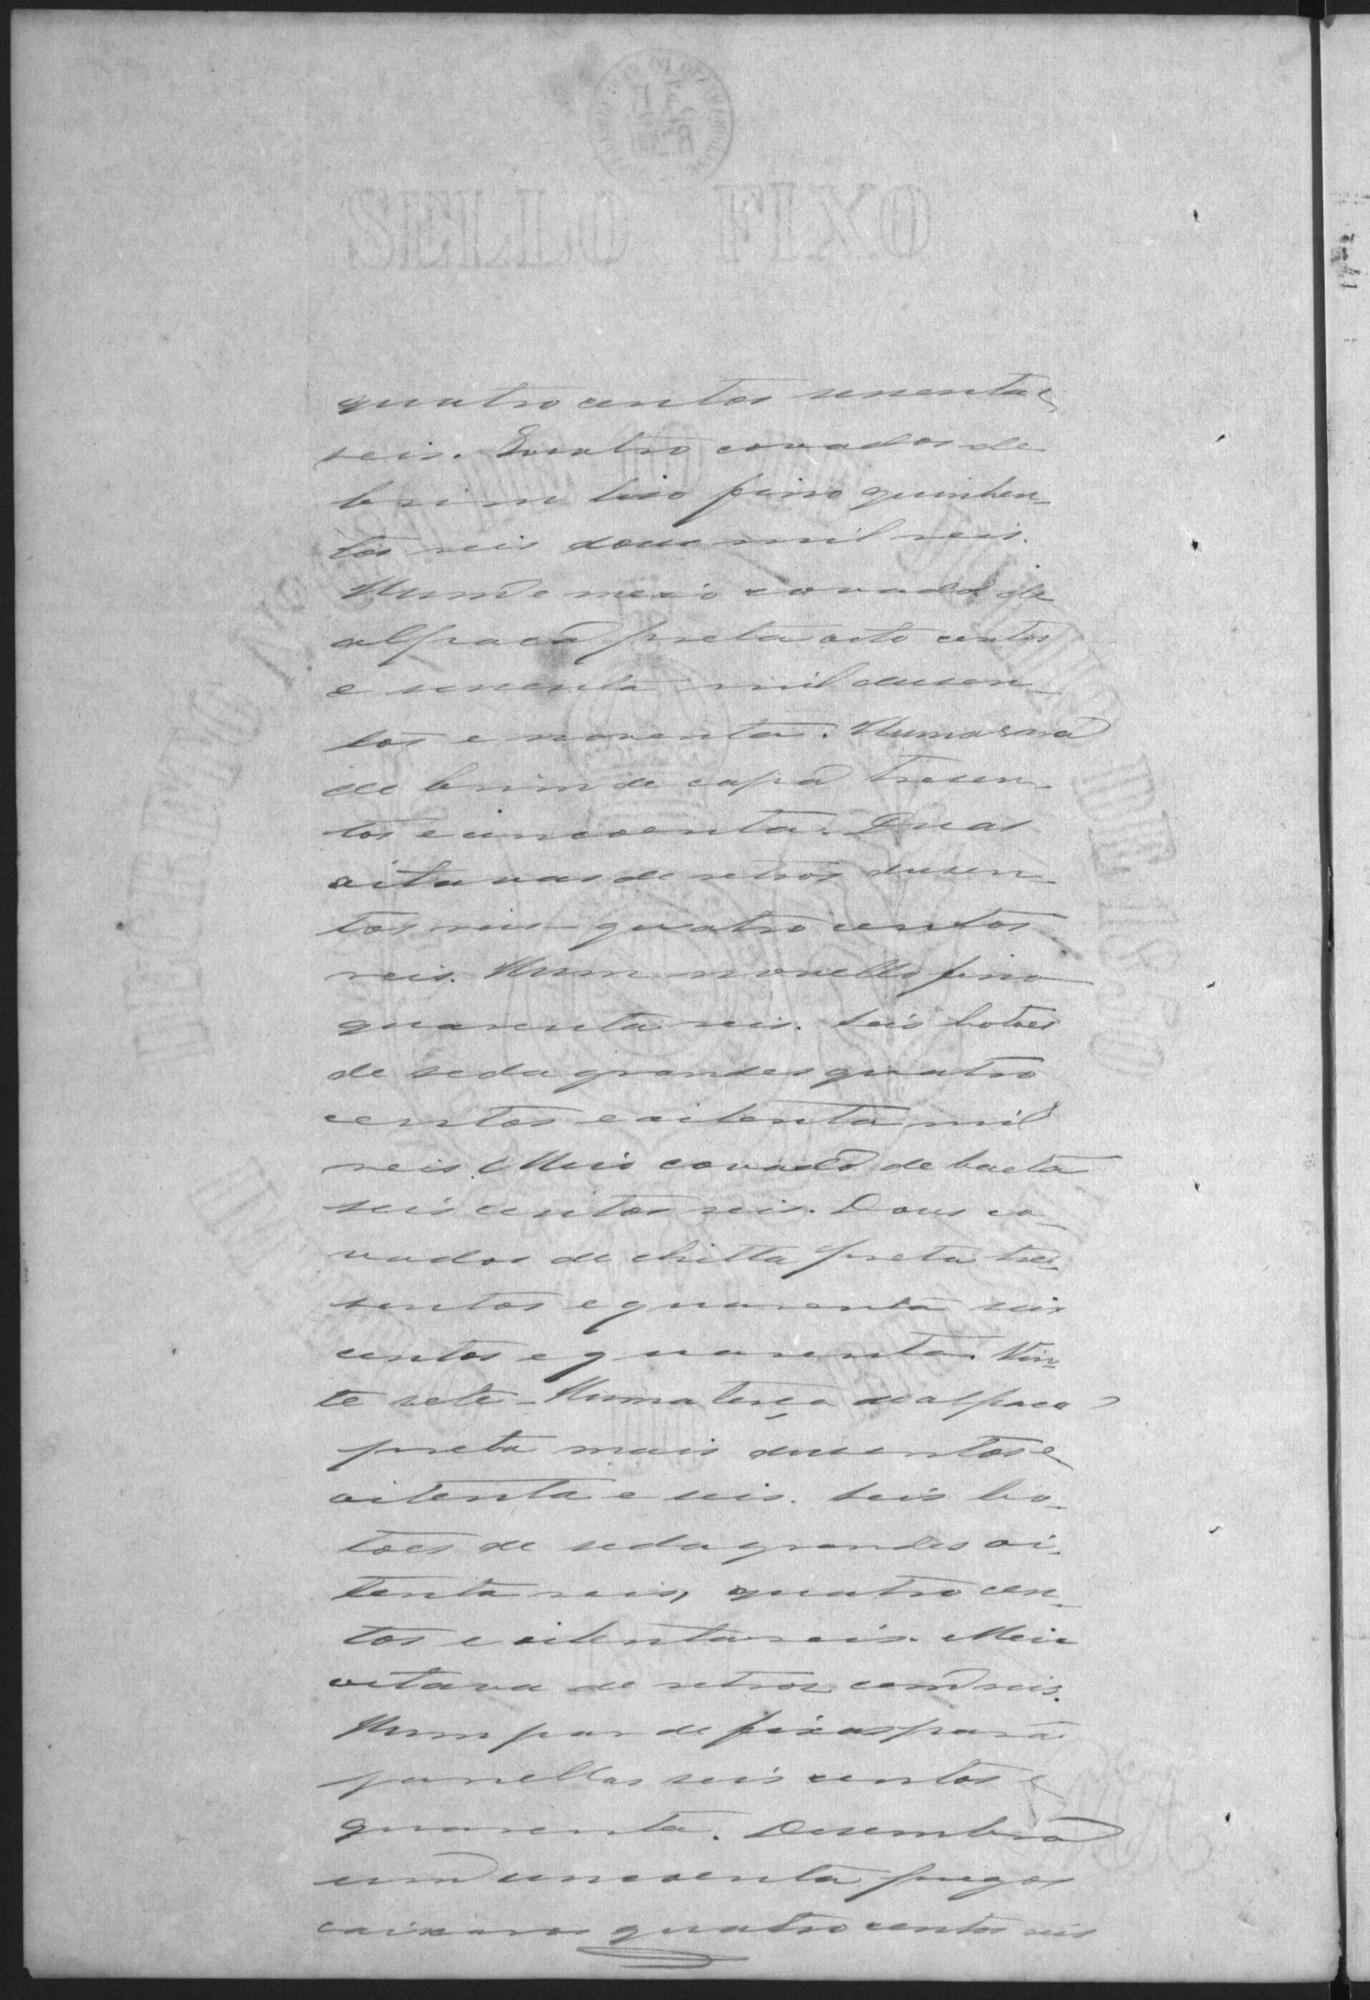 SELLO FIXO
quatro centos secenta e
seis. Quatro covados de
brim liso fino quinhen-
tos reis dous mil reis.
Hum e meio covado de
alpaca preta oito centos
e secenta mil dusen-
tos e noventa. Huma vara
de brim de capa tresen-
tos e cincoenta. Duas
oitavas de retros dusen-
tos reis - quatro centos
reis. Hum novello fino
quarenta reis. Seis botoes
de seda grandes quatro
centos e oitenta mil
reis. Meio covado de baeta
seis centos reis. Dous co-
vados de chitta preta tre-
sentos e quarenta seis
centos e quarenta. Vin-
te sete - Huma terça de alpaca
preta mais dusentos e
oitenta e seis. Seis bo-
toes de seda grandes oi-
tenta reis, quatro cen-
tos e oitenta reis. Meia
oitava de retros cem reis.
Hum par de fixas para
janellas seis centos e
quarenta. Desembro
um cincoenta pregos
caixaros quatro centos reis
DECRETO Nº DE 1850